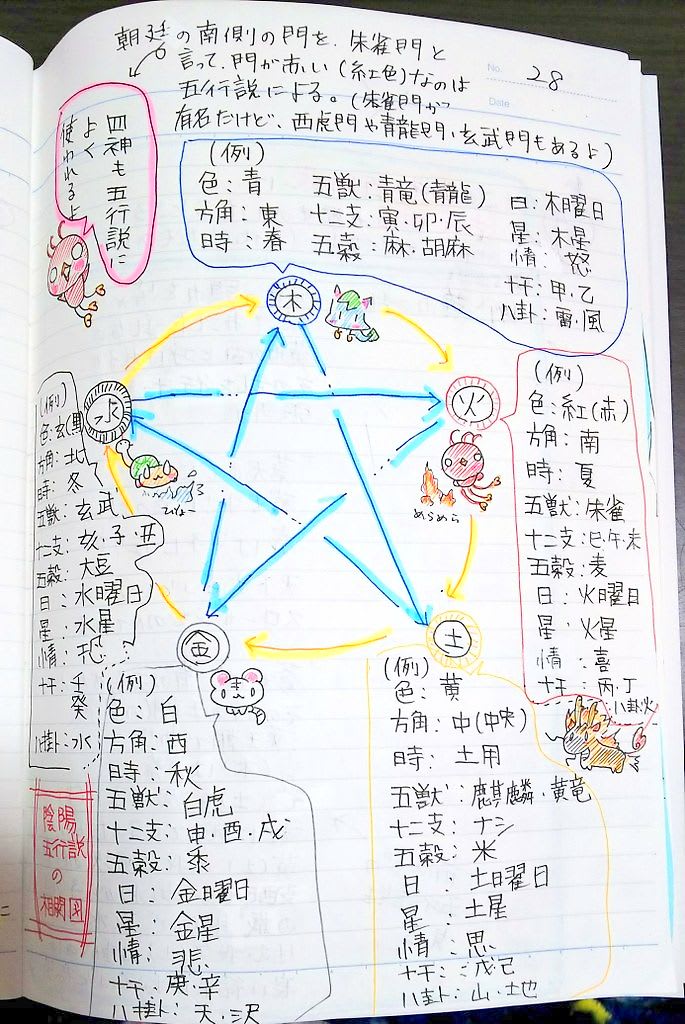 朝廷の南側の門を、朱雀門と
言って、門が赤い(紅色)なのは
五行説による。(朱雀門が
有名だけど、西虎門や青龍門、玄武門もあるよ)
No. 28
Date
四神も五行説に
よく
使われるよ
(例)
色:青
方角:東
時:春
五獣:青竜(青龍)
十二支:寅・卯・辰
五穀:麻・胡麻
日:木曜日
星:木星
情:怒
十干:甲・乙
八卦:雷・風
木
火
(例)
色:紅(赤)
方角:南
時:夏
五獣:朱雀
十二支:巳・午・未
五穀:麦
日:火曜日
星:火星
情:喜
十干:丙・丁
八卦:火
めらめら
水
(例)
色:玄(黒)
方角:北
時:冬
五獣:玄武
十二支:亥・子・丑
五穀:大豆
日:水曜日
星:水星
情:恐
十干:壬
癸
八卦:水
金
(例)
色:白
方角:西
時:秋
五獣:白虎
十二支:申・酉・戌
五穀:黍
日:金曜日
星:金星
情:悲
十干:庚・辛
八卦:天・沢
土
(例)
色:黄
方角:中(中央)
時:土用
五獣:麒麟・黄竜
十二支:ナシ
五穀:米
日:土曜日
星:土星
情:思
十干:戊己
八卦:山・土也
陰陽
五行説
の
相関図